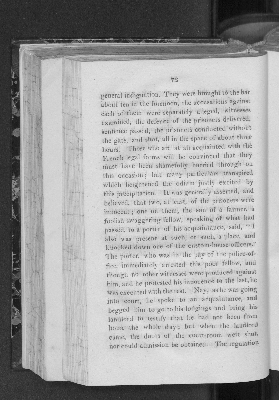 78
general indignation. They were brought to the bar
about ten in the forenoon, the accusations against
each of them were separately alleged, witnesses
examined, the defence of the prisoners delivered,
sentence passed, the prisoners conducted without
the gate, and shot, all in the space of about three
hours. Those who are at all acquainted with the
French legal forms will be convinced that they
must have been shamefully hurried through on
this occasion; but many particulars transpired
which heightened the odium justly excited by
this precipitation. It was generally asserted, and
believed, that two, at least, of the prisoners were
innocent; one of them, the son of a farmer, a
foolish swaggering fellow, speaking of what had
passed, to a porter of his acquaintance, said, "I
also was present at such, or such, a place, and
knocked down one of the custom-house officers."
The porter, who was in the pay of the police-of-
fice, immediately arrested this poor fellow, and
though no other witnesses were produced against
him, and he protested his innocence to the last, he
was executed with the rest. Nay, as he was going
into court, he spoke to an acquaintance, and
begged him to go to his lodgings and bring his
landlord to testify that he had not been from
home the whole day; but when the landlord
came, the doors of the court-room were shut,
nor could admission be obtained. The regulation